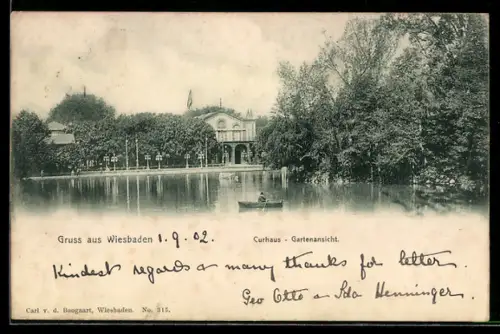 Gruss aus Wiesbaden 1.9.02. Curhaus - Gartenansicht.
Kindest regards & many thanks for letter.
Geo Otto & Ida Henninger.
Carl v. d. Boogaart, Wiesbaden. No. 215.